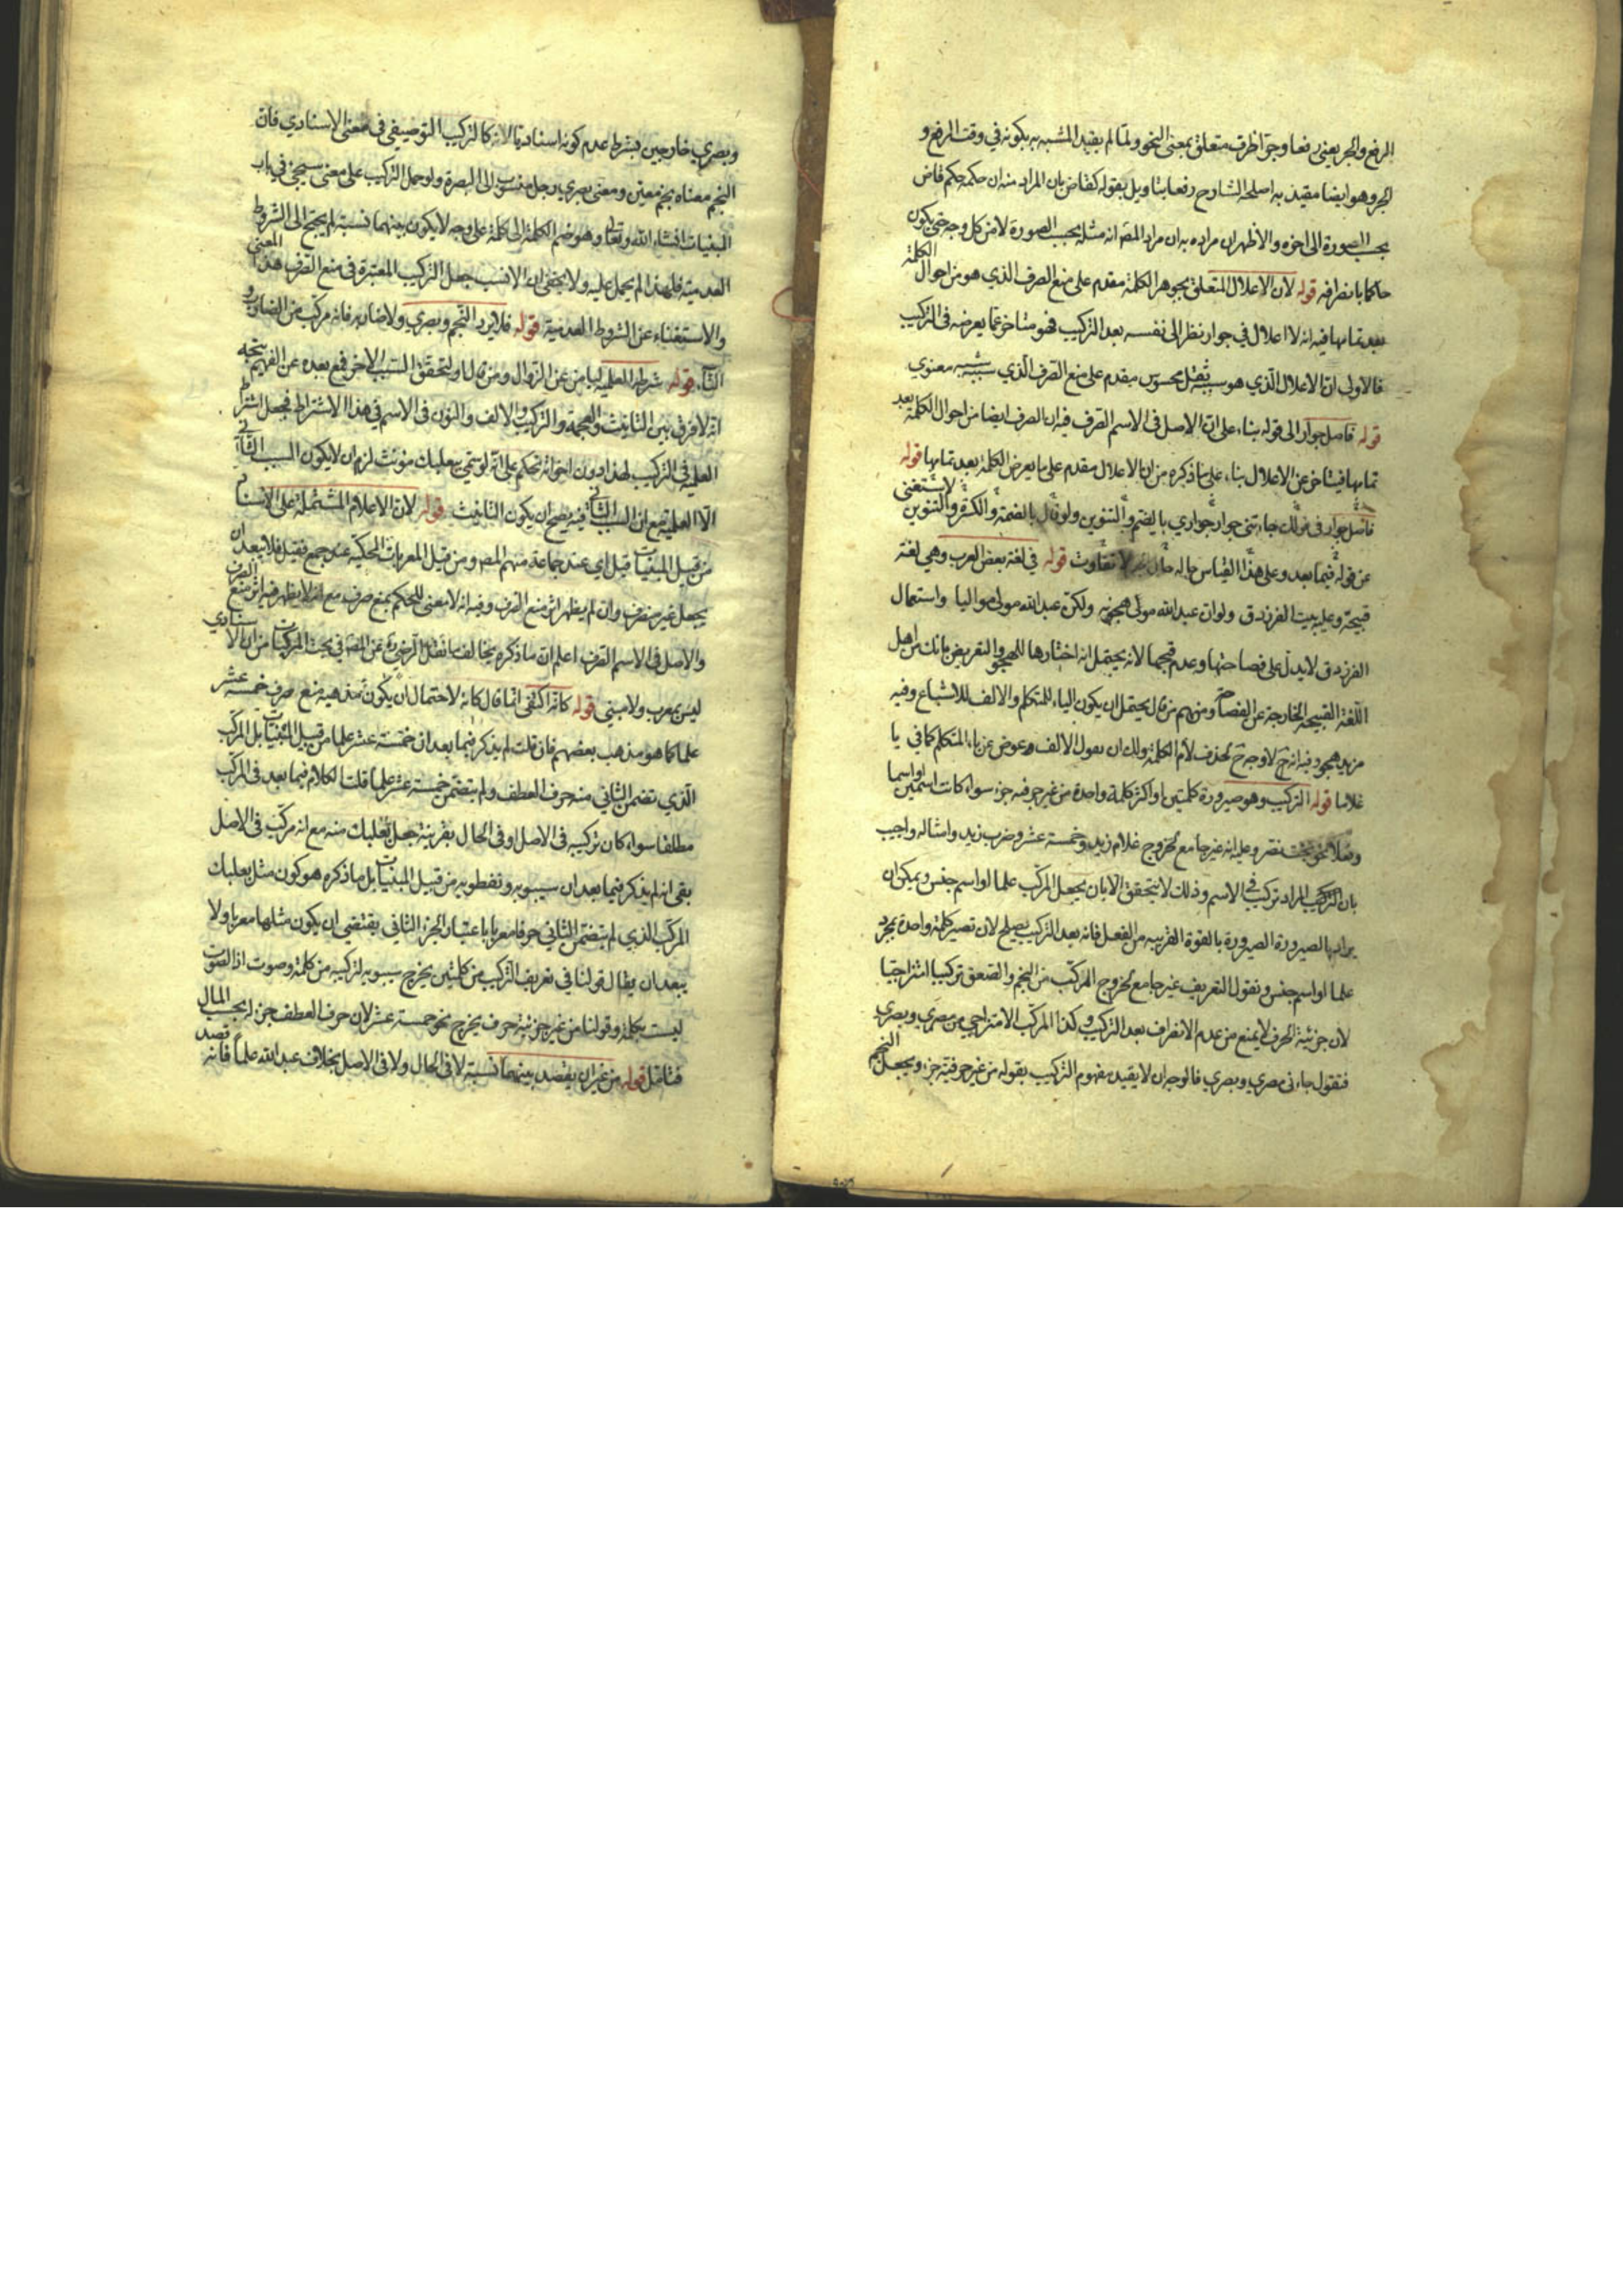 الرفع والجر يعني رفعا وجرّا ظرف متعلق بمعنى النحو ولما لم يقيد المشبه به بكونه في وقت الرفع و
الجر وهو ايضا مقيد به اصلحه الشارح رفعا بتاويل بقوله كقاض بان المراد منه ان حكمه حكم قاض
بحسب الصورة الى اخره والاظهر ان مراده به ان مراد المص انه مثله بحسب الصورة لا من كل وجه حتى يكون
حاكما بانصرافه قوله لان الاعلال المتعلق بجوهر الكلمة مقدم على منع الصرف الذي هو من احوال الكلمة
بعد تمامها فيه انه لا اعلال في جوار نظرا الى نفسه بعد التركيب فهو متاخر عما يعرضه في التركيب
فالاولى ان الاعلال الذي هو سببه ثقل محسوس مقدم على منع الصرف الذي سببه شبه معنوي
قوله فاصل جوار الى قوله بناء على ان الاصل في الاسم الصرف فيه ان الصرف ايضا من احوال الكلمة بعد
تمامها فيتاخر عن الاعلال بناء على ما ذكره من ان الاعلال مقدم على ما يعرض الكلمة بعد تمامها قوله
فاصل جوار في قولك جاءتني جوار جواري بالضم والتنوين ولو قال بالضمة او الكسرة والتنوين لاستغنى
عن قوله فيما بعد وعلى هذا القياس حاله بلا تفاوت قوله في لغة بعض العرب وهي لغة
قبيحة وعليه بيت الفرزدق ولو ان عبد الله مولى هجوته ولكن عبد الله مولى مواليا واستعمال
الفرزدق لا يدل على فصاحتها وعدم قبحها لانه يحتمل انه اختارها للهجو والتعريض بانك من اهل
اللغة القبيحة الخارجة عن الفصاحة ومنهم من قال يحتمل ان يكون الياء للمتكلم والالف للاشباع وفيه
مزيد هجو وفيه انه ح لا وجه ح لحذف لام الكلمة ولك ان تقول الالف عوض عن ياء المتكلم كما في يا
غلاما قوله التركيب وهو صيرورة كلمتين او اكثر كلمة واحدة من غير حرفية جزء سواء كانت اسمين او اسما
وفعلا نحو بخت نصر وعليه انه غير جامع لخروج غلام زيد وخمسة عشر وضرب زيد وامثاله واجيب
بان التركيب المراد تركيب في الاسم وذلك لا يتحقق الا بان يجعل المركب علما او اسم جنس ويمكن ان
يراد بالصيرورة الصيرورة بالقوة القريبة من الفعل فانه بعد التركيب يصلح لان تصير كلمة واحدة بمجرد
علما او اسم جنس ونقول التعريف غير جامع لخروج المركب من النجم والصعق تركيبا امتزاجيا
لان جزئية الحرف لا يمنع من عدم الانصراف بعد التركيب وكذا المركب الامتزاجي من مصري وبصري
فتقول جاءني مصري وبصري فالوجه ان لا يقيد مفهوم التركيب بقوله من غير حرفية جزء ويجعل النجم
وبصري خارجين بشرط عدم كونه اسناديا لانه كالتركيب التوصيفي في معنى الاسنادي فان
النجم معناه نجم معين ومعنى بصري رجل منسوب الى البصرة ولو حمل التركيب على معنى سيجئ في باب
المبنيات انشاء الله تعالى وهو ضم الكلمة الى كلمة على وجه لا يكون بينهما نسبة لم يحتج الى الشروط
العدمية فلهذا لم يحمل عليه ولا يخفى ان الانسب جعل التركيب المعتبرة في منع الصرف هذا المعنى
والاستغناء عن الشروط العدمية قوله فلا يرد النجم وبصري ولا ضاربة فانه مركب من الضارب و
التاء قوله شرطه العلمية ليامن عن الزوال ومن قال وليتحقق السبب الاخر فمع بعده عن الفهم يتجه
انه لا فرق بين التانيث والعجمة والتركيب والالف والنون في الاسم في هذا الاشتراط فجعل اشتراط
العلمية في التركيب لهذا دون اخواته تحكم على انه لو سمي ببعلبك مؤنث لزم ان لا يكون السبب الثاني
الا العلمية مع ان السبب الثاني فيه يصح ان يكون التانيث قوله لان الاعلام المشتملة على الاسناد
من قبيل المبنيات قيل اي عند جماعة منهم المص ومن قبيل المعربات المحكية عند جمع فقيل فلا يبعد ان
يجعل غير منصرف وان لم يظهر اثر منع الصرف وفيه انه لا معنى للحكم بمنع صرف مع انه لا يظهر فيه اثر منع الصرف
والاصل في الاسم الصرف اعلم ان ما ذكره يخالف ما نقل الرضي عن المص في بحث المركبات من ان الاسنادي
ليس بمعرب ولا مبني قوله كانه اكتفى انما قال كانه لاحتمال ان يكون مذهبه منع صرف خمسة عشر
علما كما هو مذهب بعضهم فان قلت لم يذكر فيما بعد ان خمسة عشر علما من قبيل المبنيات بل المركب
الذي تضمن الثاني منه حرف العطف ولم يتضمن خمسة عشر علما قلت الكلام فيما بعد في المركب
مطلقا سواء كان تركيبه في الاصل او في الحال بقرينة جعل بعلبك منه مع انه مركب في الاصل
بقي انه لم يذكر فيما بعد ان سيبويه ونفطويه من قبيل المبنيات بل ما ذكره هو كون مثل بعلبك
المركب الذي لم يتضمن الثاني حرفا معربا باعتبار الجزء الثاني يقتضي ان يكون مثلها معربا ولا
يبعد ان يقال قولنا في تعريف التركيب من كلمتين يخرج سيبويه لتركيبه من كلمة وصوت اذ الصوت
ليست بكلمة وقولنا من غير جزئية حرف يخرج نحو خمسة عشر لان حرف العطف جزء له بحسب المال
فتامل قوله من غير ان يقصد بينهما نسبة لا في الحال ولا في الاصل بخلاف عبد الله علما فانه قصد